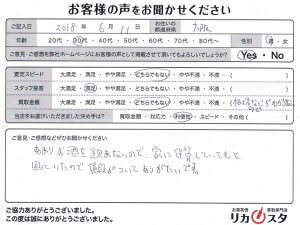 お客様の声をお聞かせください
ご記入日 2018年 6月 11日 お住いの都道府県 大阪
年齢 20代・30代・40代・50代・60代・70代・80代～ 性別 男・女
ご意見・ご感想を弊社ホームページにお客様の声として掲載させて頂いてもよろしいでしょうか？ Yes・No
査定スピード 大満足・満足・どちらでもない・やや不満・不満・( )
スタッフ接客 大満足・満足・どちらでもない・やや不満・不満・( )
買取金額 大満足・満足・どちらでもない・やや不満・不満・(
当店をお選びいただきました決め手は？ 買取金額・対応力・利便性・その他( )
ご意見・ご感想などぜひお聞かせください
あまりお酒を飲まないので、家に保管していてもと
困っていたので値段がついてありがたいです
ご協力ありがとうございました。
この度は誠にありがとうございました。
お酒買取専門店
リカスタ